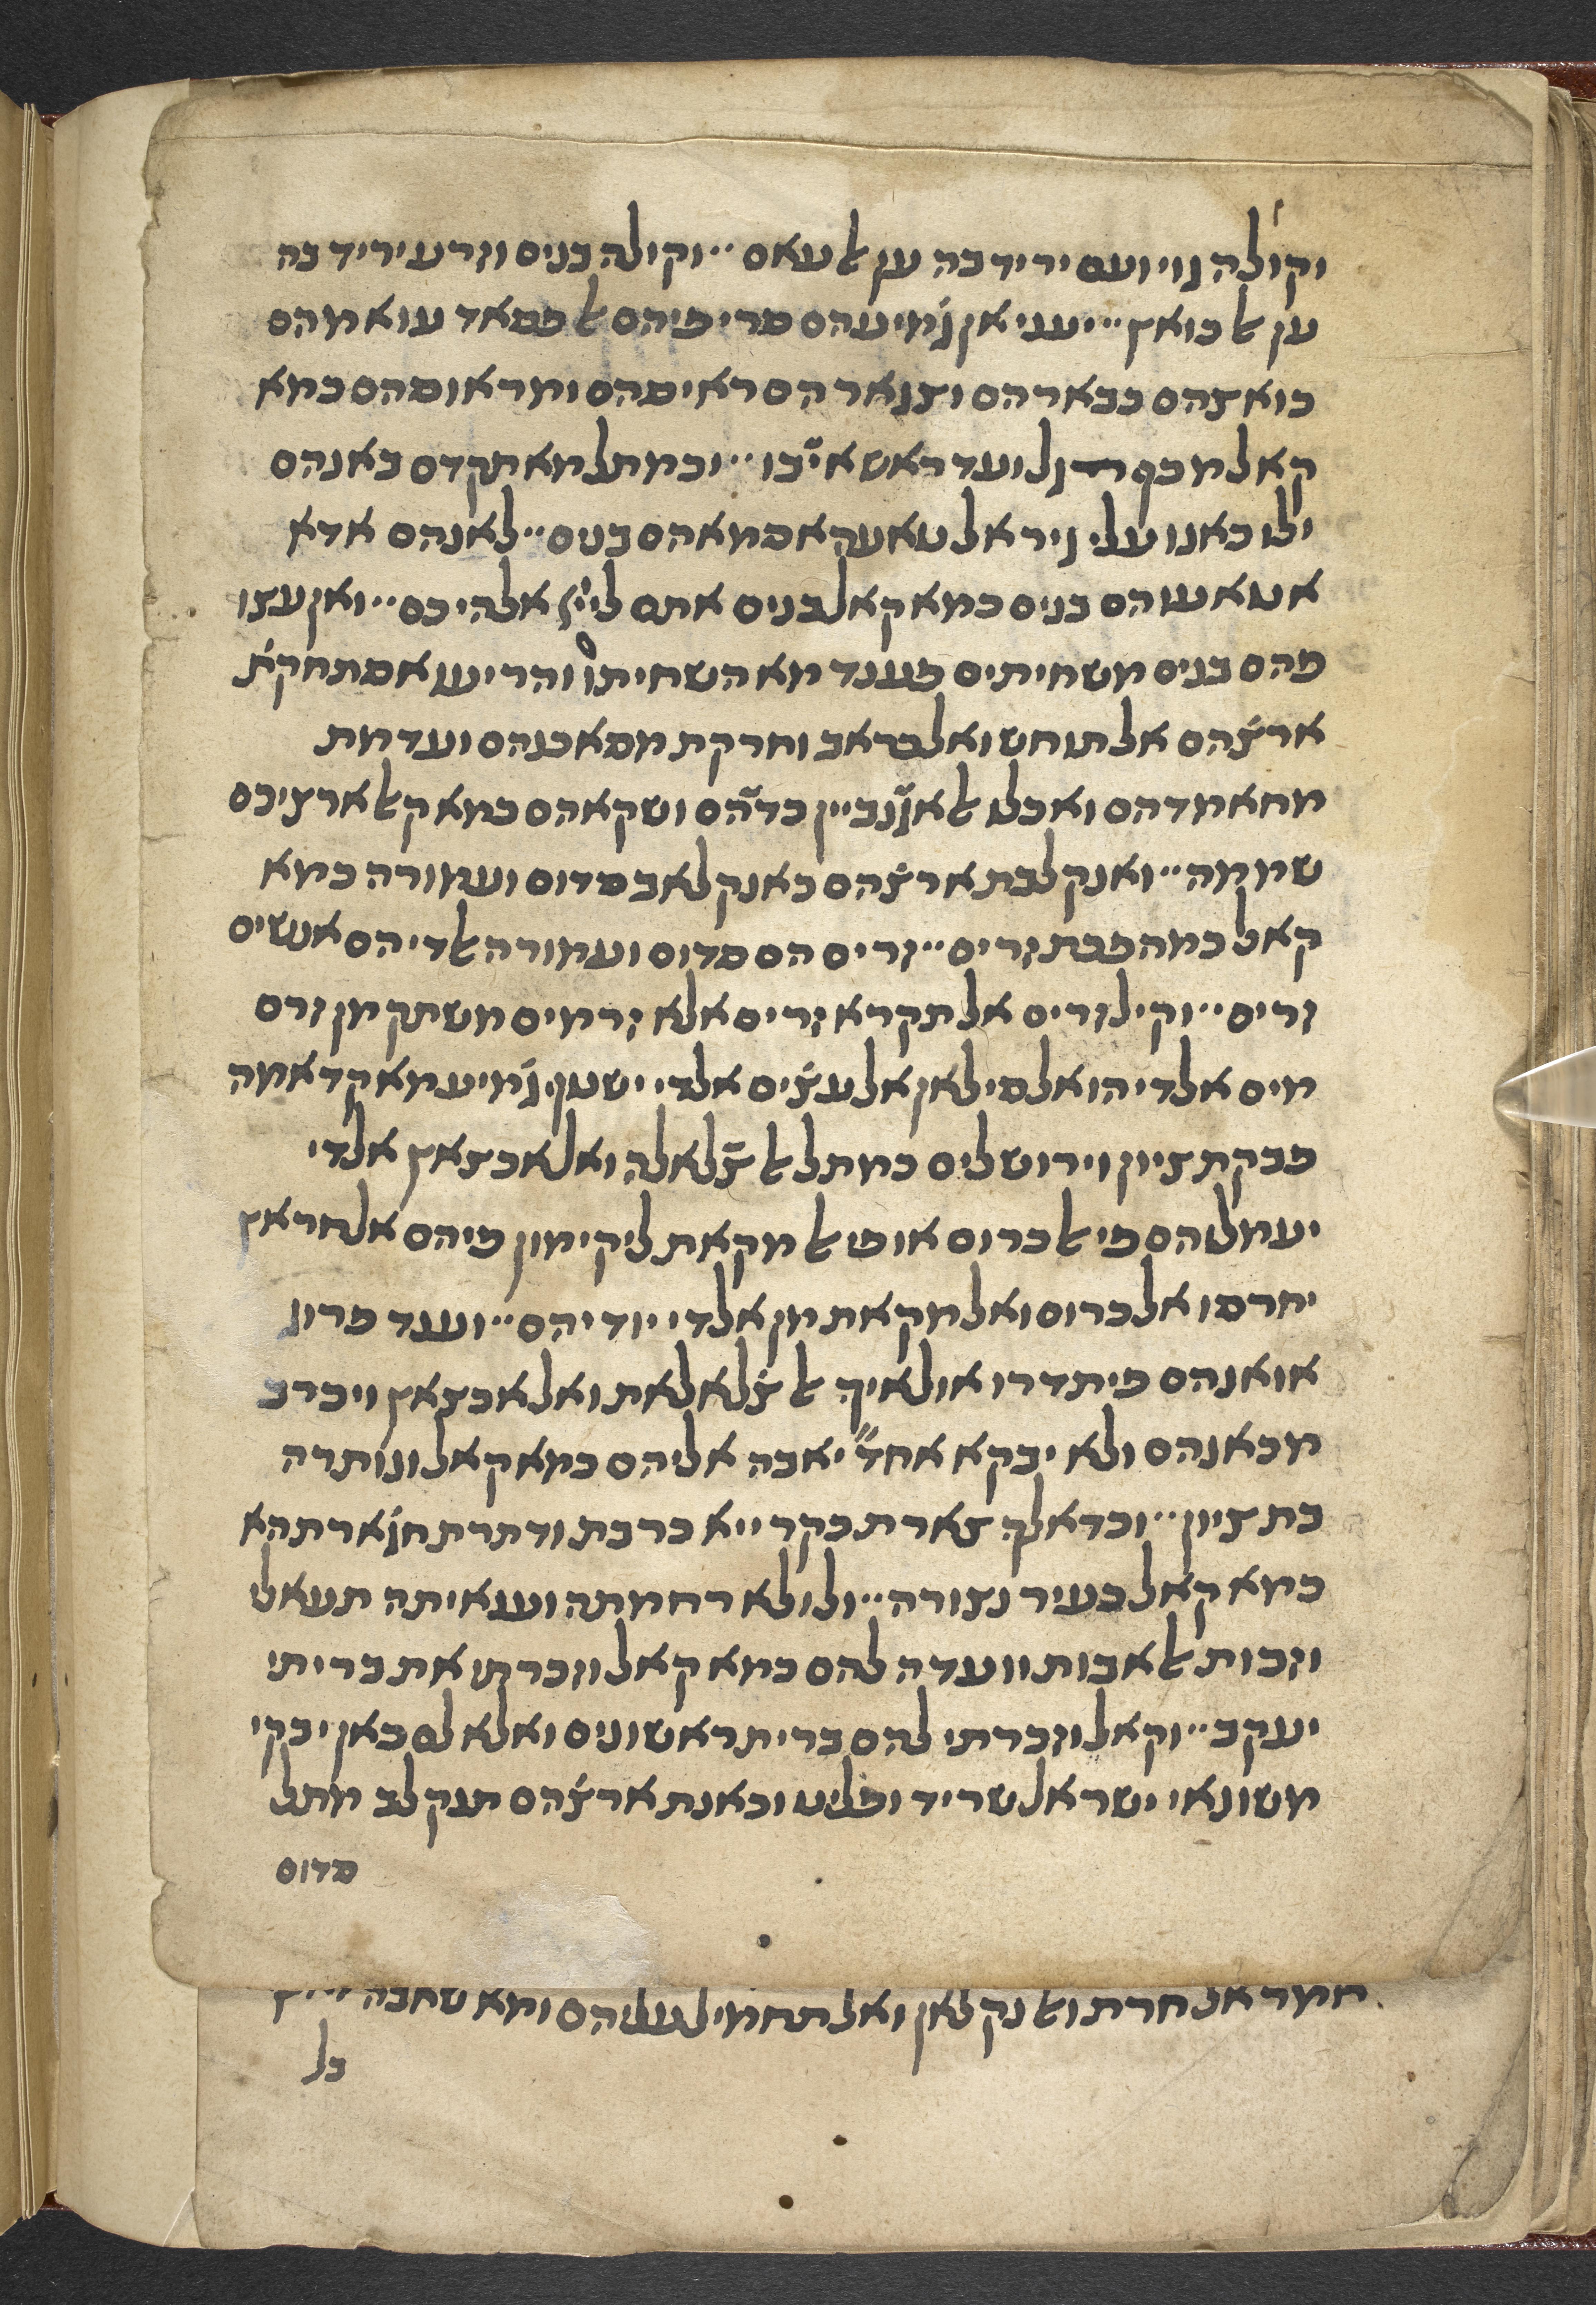 וקולה גוי ועם יריד בה ען אלעאם·· וקולה בנים וזרע יריד בה
ען אלכואץ·· יעני אן גמיעהם סרי פיהם אלפסאד עואמהם
כואצהם כבארהם וצגארהם ראיסהם ומראוסהם כמא
קאל מכף רגל ועד ראש אי׳ בו·· וכמתל מא תקדם באנהם
ילו כאנו עלי גיר אלטאעה אסמאהם בנים·· לאנהם אדא
אטאעו הם בנים כמא קאל בנים אתם לייי אלהיכם·· ואן עצו
פהם בנים משחיתים פענד מא השחיתו והריעו אסתחקת
ארצׄהם אלתוחש ואלכראב וחרקת מסאכנהם ועדמת
מחאמדהם ואכלו אלאגׄנביין כדהם ושקאהם כמא ק׳ לארציכם
שממה·· ואנקלבת ארצׄהם כאנקלאב סדום ועמורה כמא
קאל כמהפכת זרים·· זרים הם סדום ועמורה אלדי הם אנשים
זרים·· וקיל זרים אל תקרא זרים אלא זרמים משתק מן זרם
מים אלדי הו אלסיל אן אלעצׄים אלדי ישטף גמיע מא קדאמה
פבקת ציון וירושלים כמתל אלצׄלאלה ואלאכצאץ אלדי
יעמלוהם פי אלכרום או פי אלמקאת ליקימון פיהם אלחראץ
יחרסו אלכרום ואלמקאת מן אלדי יודיהם·· ועגד פרוג
אואנהם פיתדרו אולאיך אלצׄלאלאת ואלאכצאץ ויכרב
מכאנהם ולא יבקא אחד״ יאבה אליהם כמא קאל ונותרה
בת ציון·· וכדאלך צארת בקרייא כרבת ודתרת חגׄארתהא
כמא קאל כעיר נצורה·· ולולא רחמתה ועגאיתה תעאלי
וזכות אלאבות ווועדה להם כמא קאל וזכרתי את בריתי
יעקב·· וקאל וזכרתי להם ברית ראשונים ואלא לם כאן יבקי
משונאי ישראל שריד ופליט וכאנת ארצׄהם תנקלב מתל
סדום
חמר אנחרת ואלנקלאן ואלתחמיל עליהם ומא שחבה
כל